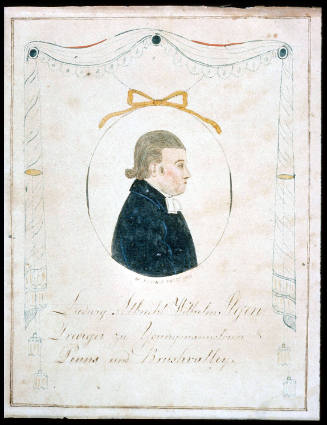 Ludwig Albrecht Wilhelm Ilgen
Prediger zu Youngmannstown
Penns und Brushvalley.